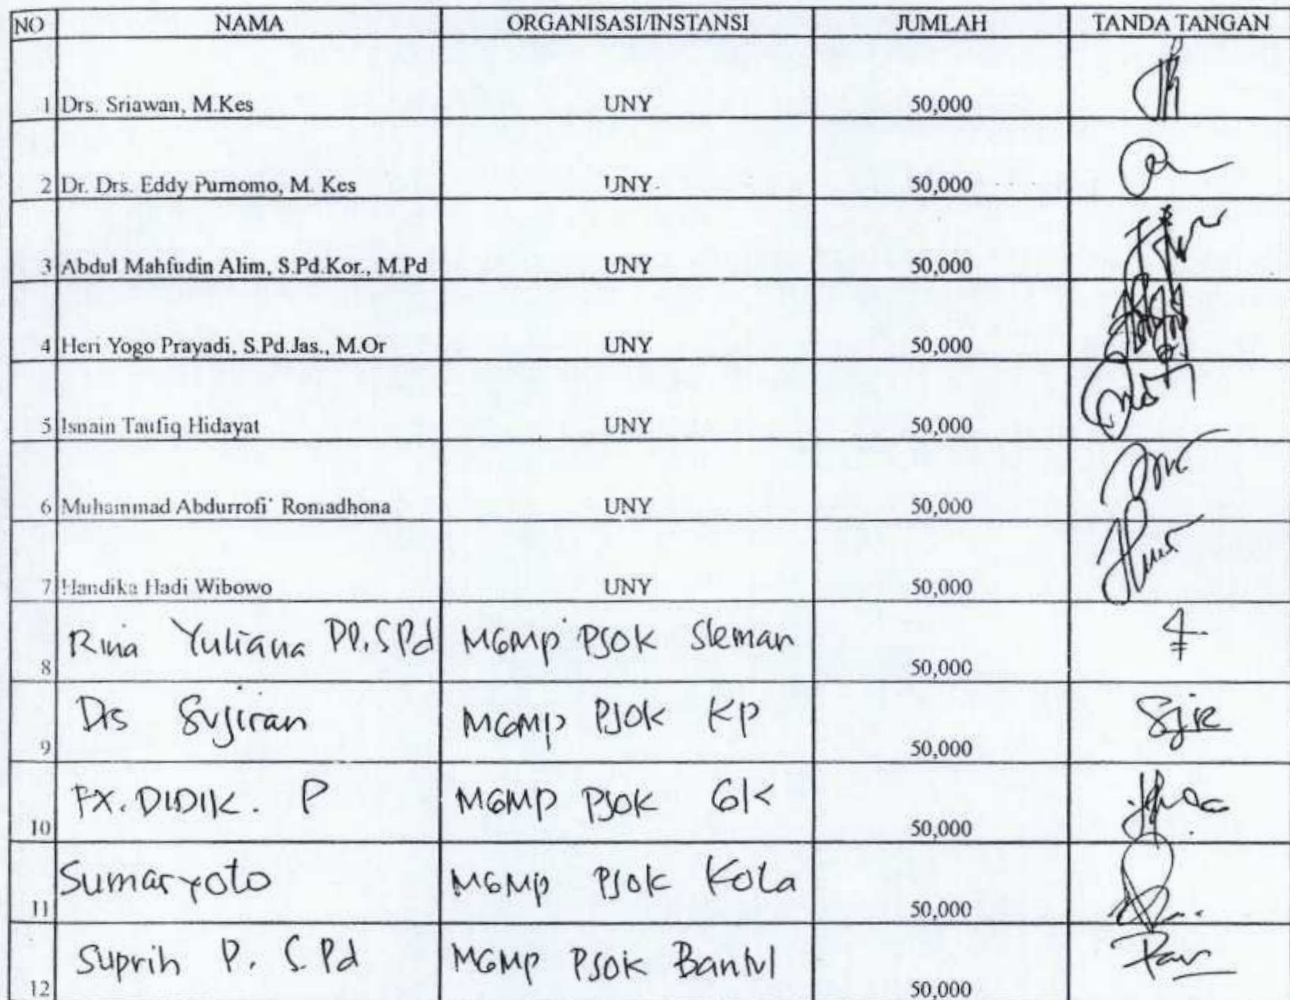 NO NAMA ORGANISASI/INSTANSI JUMLAH TANDA TANGAN
1 Drs. Sriawan, M.Kes UNY 50,000
2 Dr. Drs. Eddy Purnomo, M. Kes UNY 50,000
3 Abdul Mahfudin Alim, S.Pd.Kor., M.Pd UNY 50,000
4 Heri Yogo Prayadi, S.Pd.Jas., M.Or UNY 50,000
5 Isnain Taufiq Hidayat UNY 50,000
6 Muhammad Abdurrofi' Romadhona UNY 50,000
7 Handika Hadi Wibowo UNY 50,000
8 Rina Yuliana PP.SPd MGMP PJOK Sleman 50,000
9 Drs Sujiran MGMP PJOK KP 50,000
10 FX. DIDIK. P MGMP PJOK GK 50,000
11 Sumaryoto MGMP PJOK Kota 50,000
12 Suprih P. S.Pd MGMP PJOK Bantul 50,000